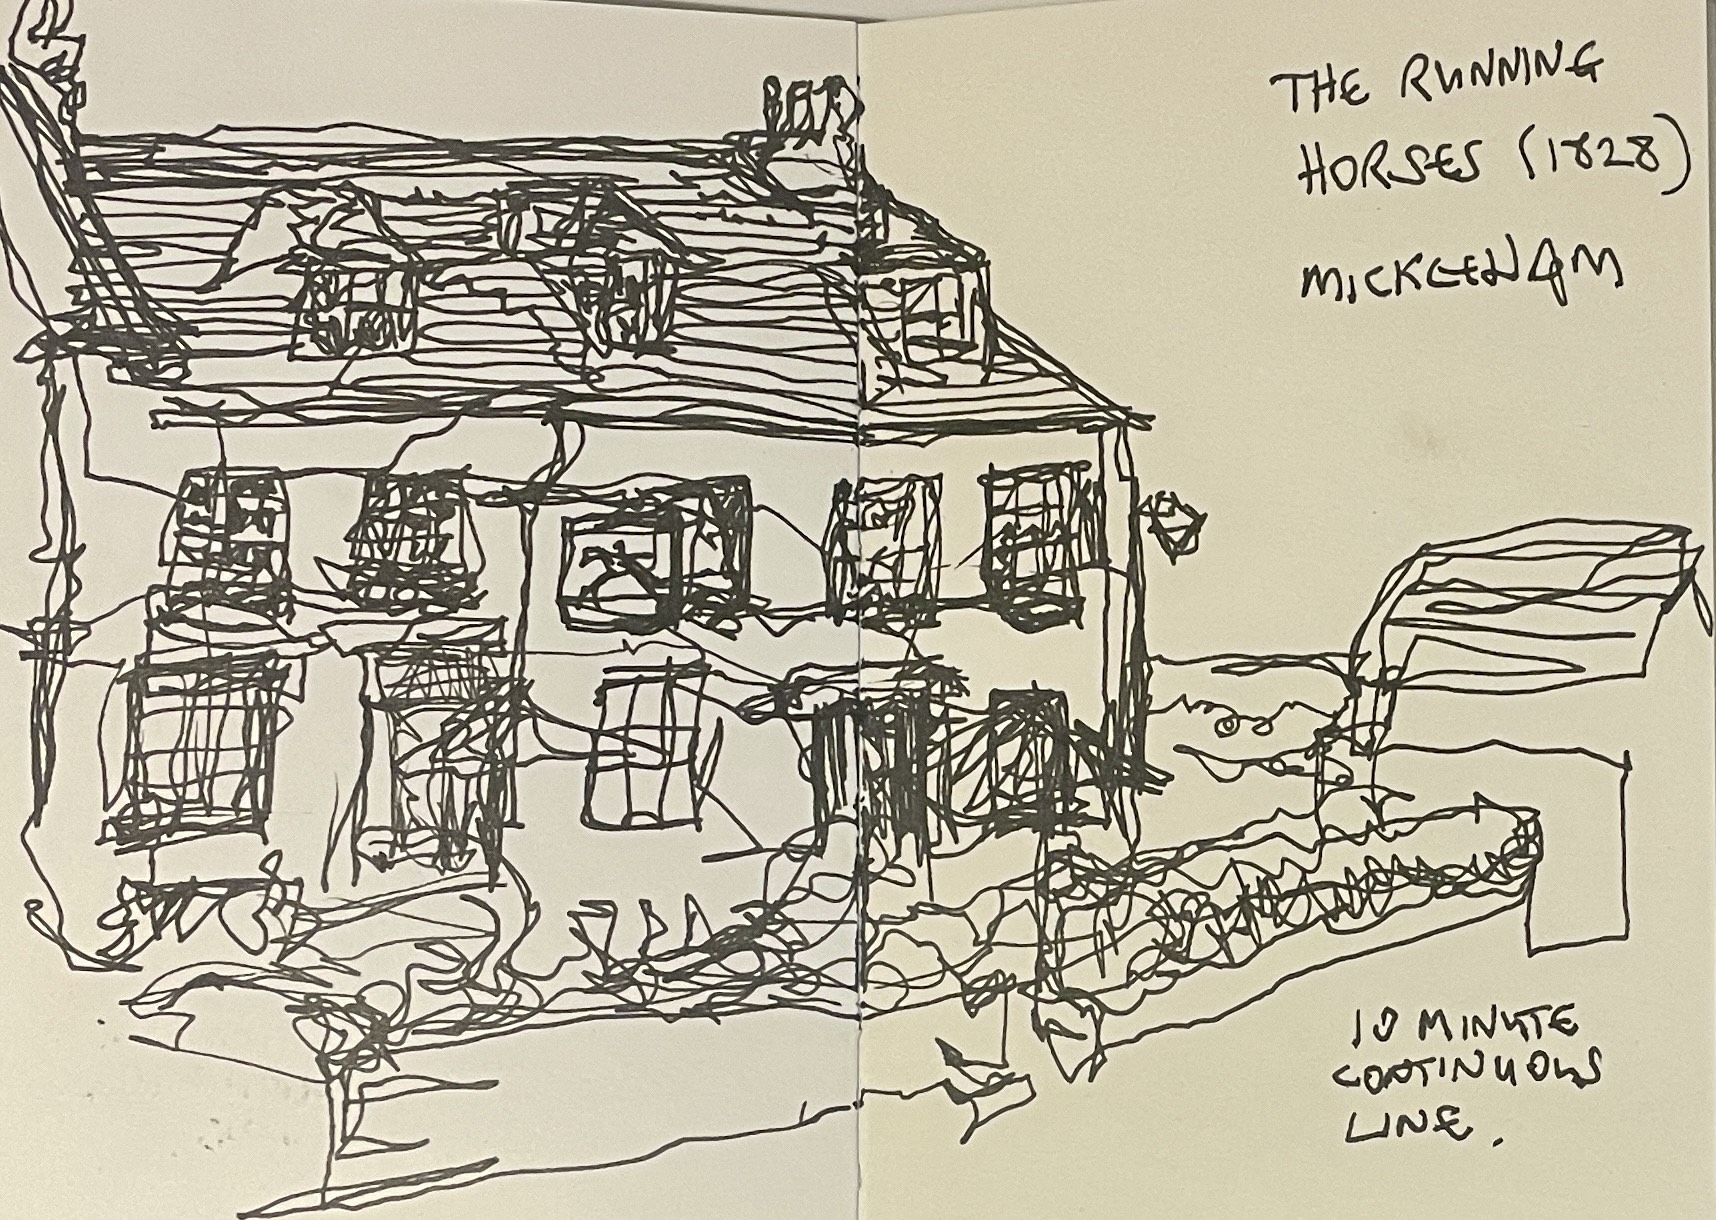 THE RUNNING
HORSES (1828)
MICKLEHAM
10 MINUTE
CONTINUOUS
LINE.